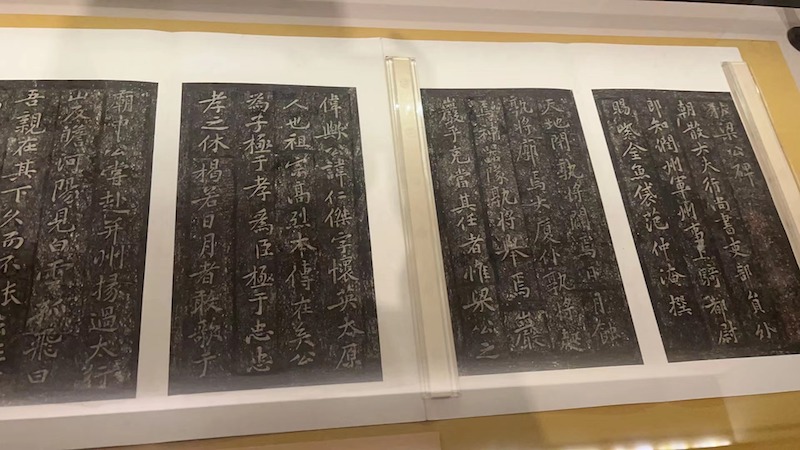 狄梁公碑
朝散大夫行尚書吏部員外
郎知潤州軍州事上騎都尉
賜紫金魚袋范仲淹撰
天地閉孰將闢焉日月蝕
孰將廓焉大廈仆孰將起
焉神器墜孰將舉焉巖
巖乎克當其任者惟梁公之
偉歟諱仁傑字懷英太原
人也祖宗高烈本傳在矣公
為子極于孝為臣極于忠忠
孝之休揭若日月者敢歌于
廟中公嘗赴并州掾過太行
山反瞻河陽見白雲孤飛曰
吾親在其下久而不